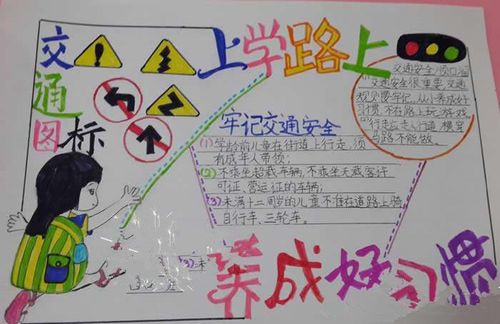 交通图标
上学路上
交通安全
交通安全很重要,交通
规则要牢记,从小养成好
习惯,不在路上玩游戏
行走应走人行道,横穿
马路不能做。
牢记交通安全
(1)学龄前儿童在街道上行走,须
有成年人带领;
(2)不乘坐超载车辆,不乘坐无载客许
可证、营运证的车辆;
(3)未满十二周岁的儿童不准在道路上骑
自行车、三轮车。
(3)未
养成好习惯